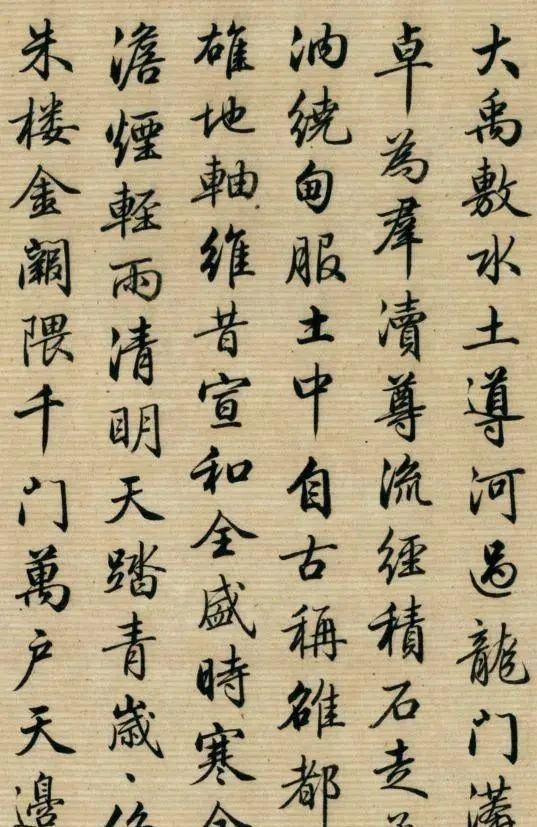 大禹敷水土導河過龍門
卓為羣瀆尊流經積石走
洶繞甸服土中自古稱雄都
雄地軸維昔宣和全盛時寒
澹煙輕雨清明天踏青歲、
朱楼金闕隈千門萬户天邊